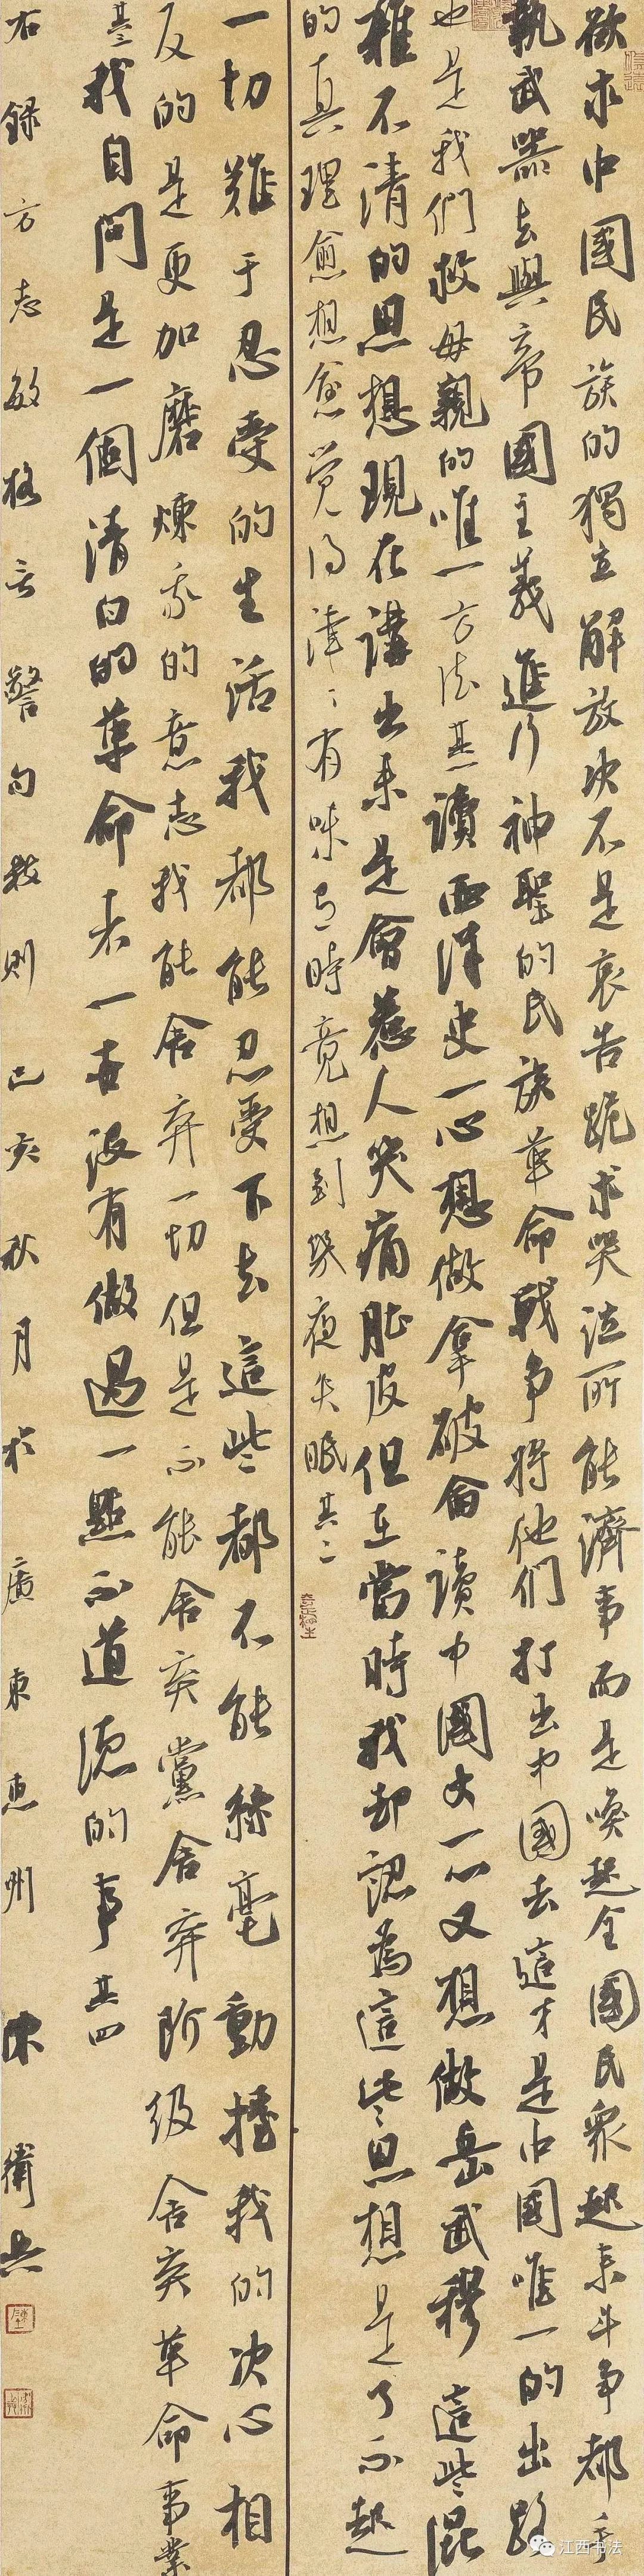 欲求中國民族的獨立解放决不是哀告跪求哭泣所能濟事而是喚起全國民衆起來斗争都手
執武器去與帝國主義進行神聖的民族革命戰争將他們打出中國去這才是中國唯一的出路
也是我們救母親的唯一方法其一讀西洋史一心想做拿破侖讀中國史一心又想做岳武穆這些混
雜不清的思想現在講出來是會惹人笑痛肚皮但在當時我却認為這些思想是了不起
的真理愈想愈觉得津々有味有時竟想到幾夜失眠其二
一切難于忍受的生活我都能忍受下去這些都不能絲毫動摇我的决心相
反的是更加磨煉我的意志我能舍弃一切但是不能舍弃黨舍弃阶级舍弃革命事業
其三我自問是一個清白的革命者一世没有做過一點不道德的事其四
右録方志敏格言警句數則己亥秋月於廣東惠州陳衛兵
江西书法